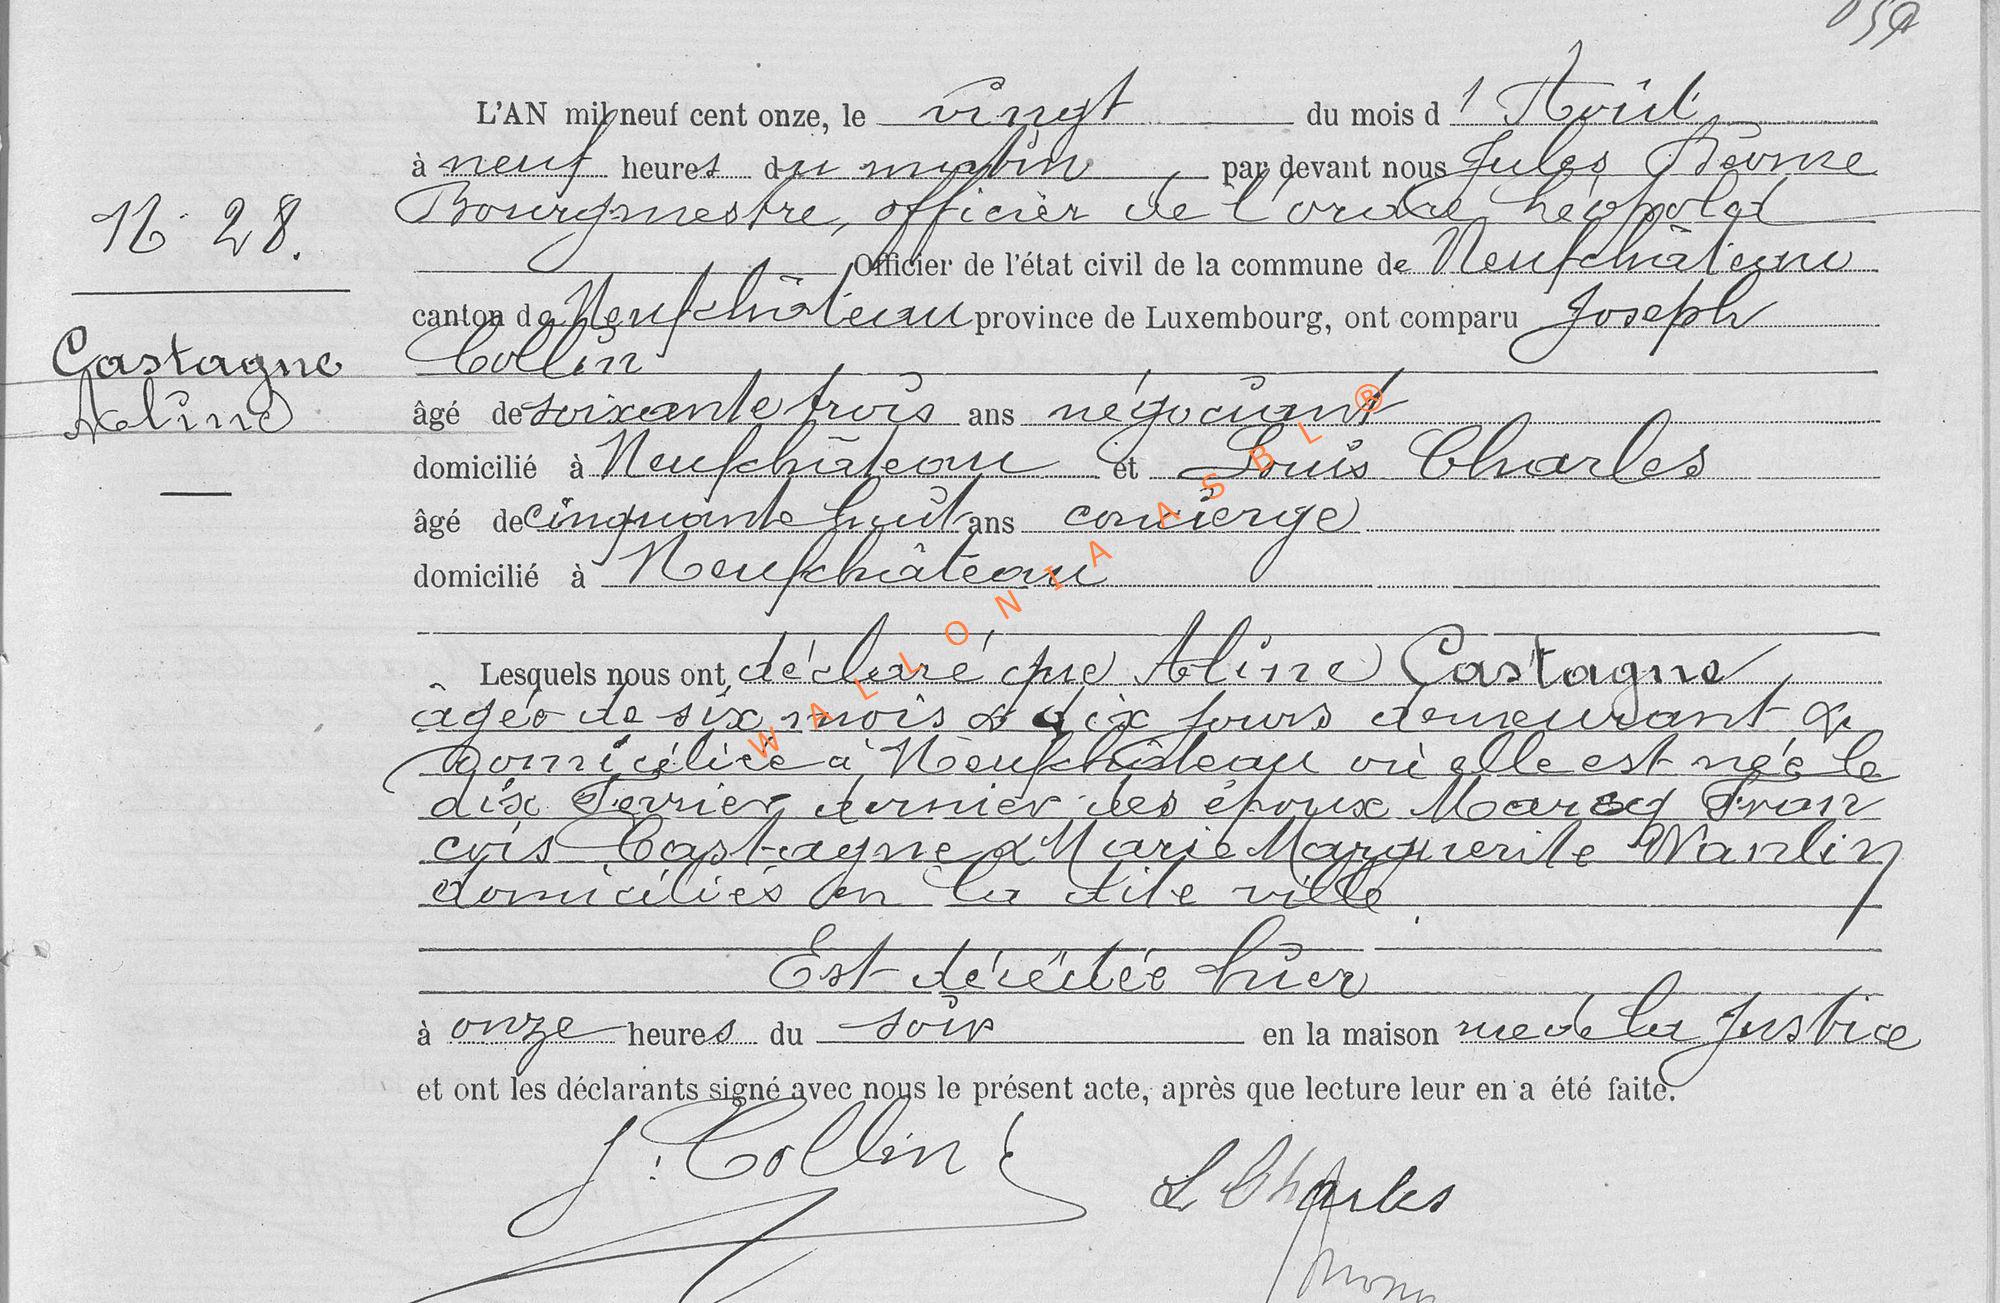 L'AN mil neuf cent onze, le vingt du mois d'Août
à neuf heures du matin par devant nous Jules
Bourgmestre, officier de l'ordre Léopold
Officier de l'état civil de la commune de Neufchâteau
N° 28.
canton de Neufchâteau province de Luxembourg, ont comparu Joseph
Collin
Castagne
Aline
âgé de soixante trois ans négociant
domicilié à Neufchâteau et Louis Charles
âgé de cinquante huit ans concierge
domicilié à Neufchâteau
Lesquels nous ont déclaré que Aline Castagne
âgée de six mois & dix jours demeurant &
domiciliée à Neufchâteau où elle est née le
dix Fevrier dernier des époux Fran
çois Castagne & Marie Marguerite Wanlin
domiciliés en la dite ville
Est décédée hier
à onze heures du soir en la maison rue de la Justice
et ont les déclarants signé avec nous le présent acte, après que lecture leur en a été faite.
J. Collin
L Charles
WALLONIA ASBL ®